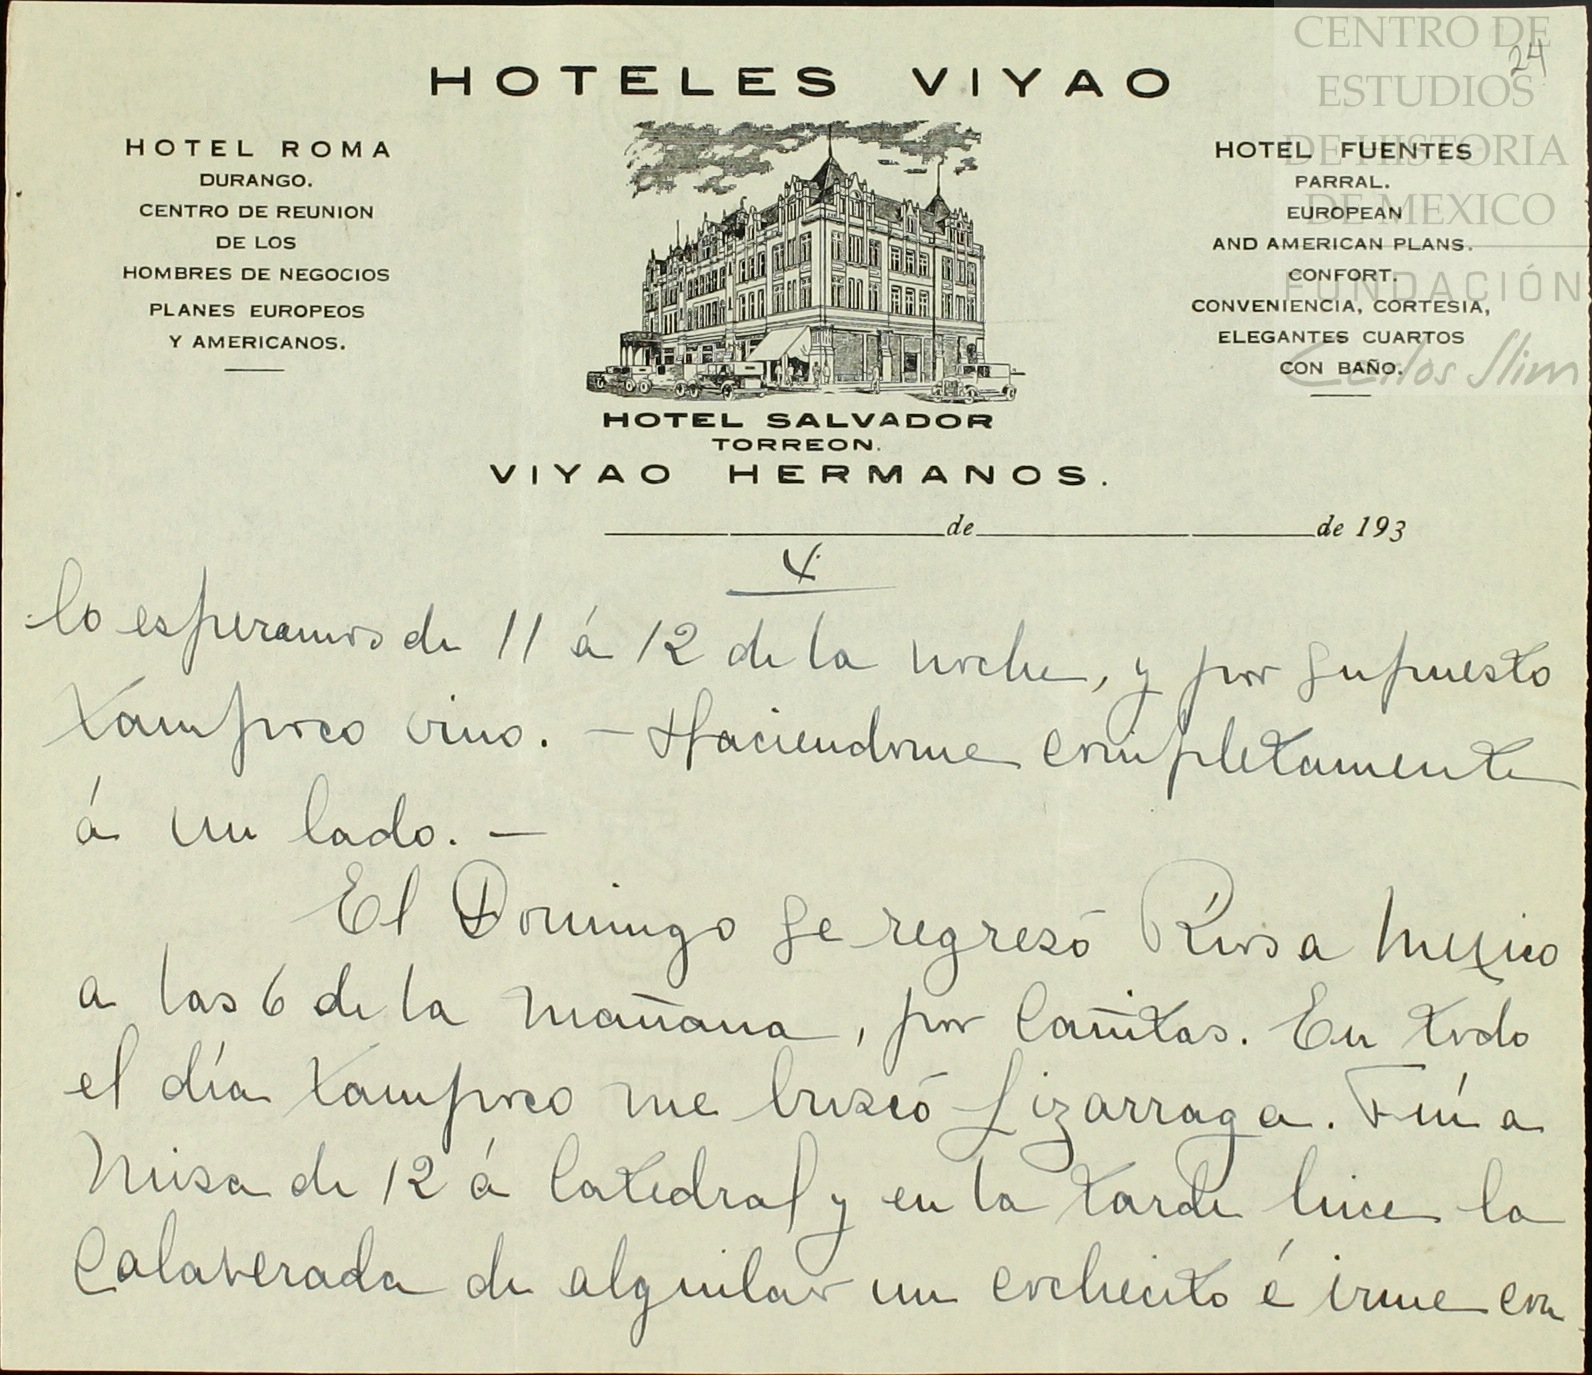 CENTRO DE
ESTUDIOS
DE HISTORIA
DE MEXICO
FUNDACIÓN
Carlos Slim
24
HOTELES VIYAO
HOTEL ROMA
DURANGO.
CENTRO DE REUNION
DE LOS
HOMBRES DE NEGOCIOS
PLANES EUROPEOS
Y AMERICANOS.
HOTEL FUENTES
PARRAL.
EUROPEAN
AND AMERICAN PLANS.
CONFORT.
CONVENIENCIA, CORTESIA,
ELEGANTES CUARTOS
CON BAÑO.
HOTEL SALVADOR
TORREON.
VIYAO HERMANOS.
de de 193
4.
lo esperamos de 11 á 12 de la noche, y por supuesto
tampoco vino. — Haciendome completamente
á un lado. —
El Domingo se regresó Rivs a Mexico
a las 6 de la mañana, por Cañitas. En todo
el día tampoco me buscó Lizarraga. Fuí a
Misa de 12 á Catedral y en la tarde hice la
Calaverada de alquilar un cochecito é irme con